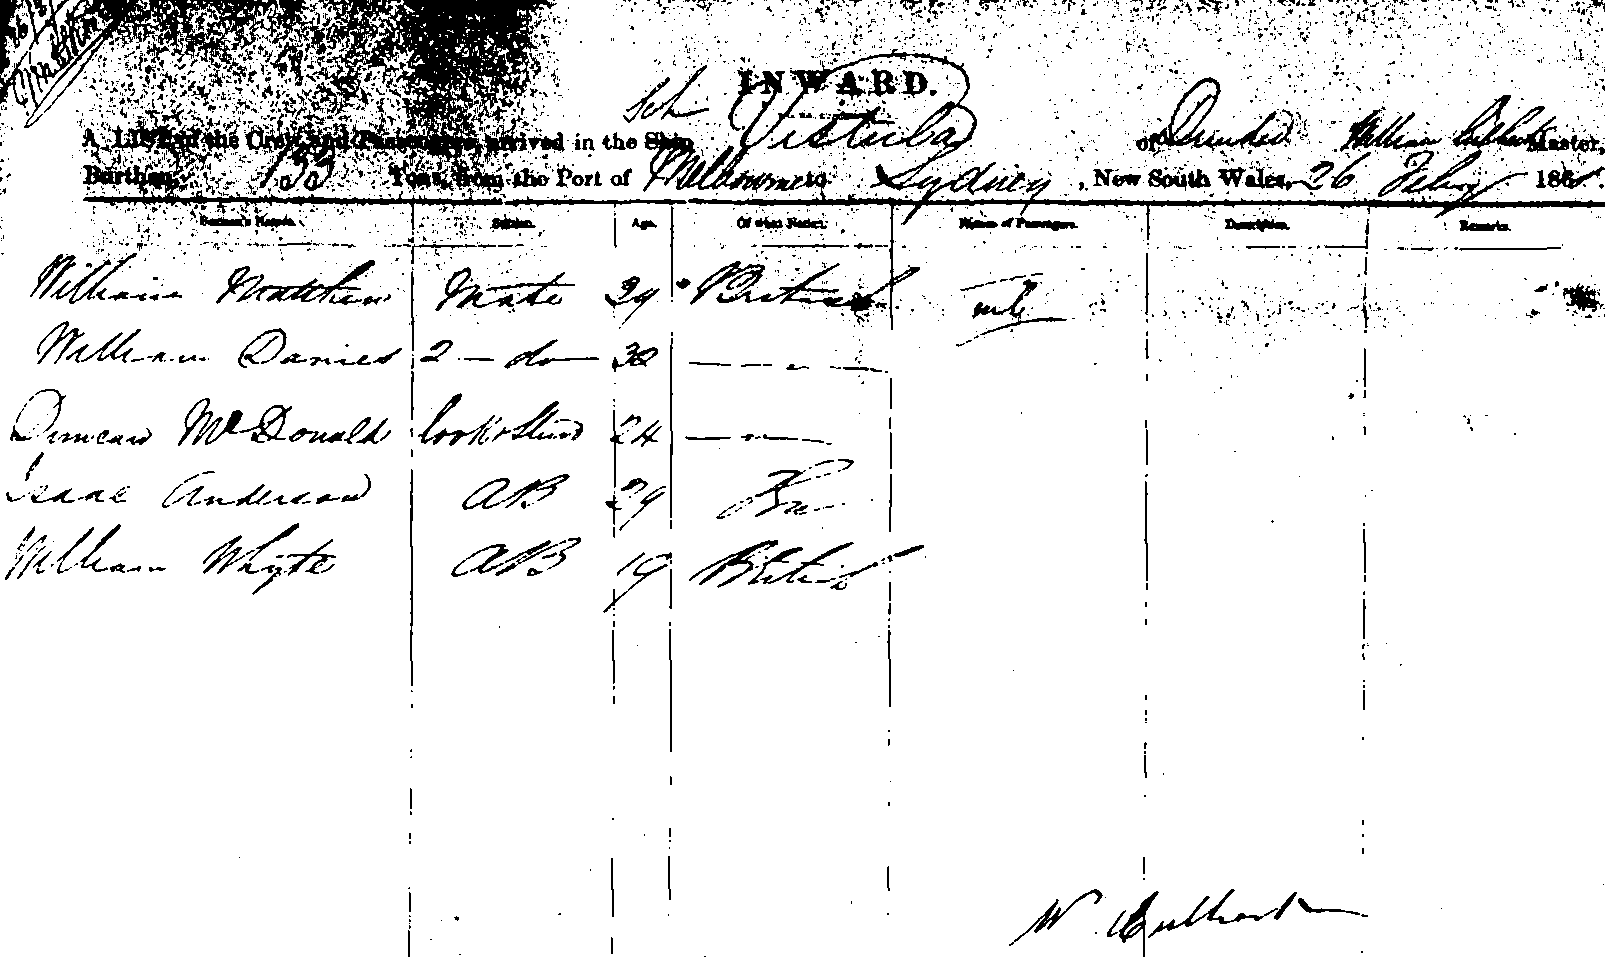 INWARD.
Sch Vistula
A LIST of the Crew and Passengers, arrived in the Ship of Dundee William Master,
Burthen, 133 Tons, from the Port of Melbourne to Sydney, New South Wales, 26 Feby 186
Seamen's Names. Station. Age. Of what Nation. Names of Passengers. Description. Remarks.
William Matthew Mate 29 British nil
William Davies 2 — do — 38 — „ —
Duncan McDonald Cook & Stewd 24 — „ —
Isaac Anderson AB 29
William Whyte AB 19 British
W